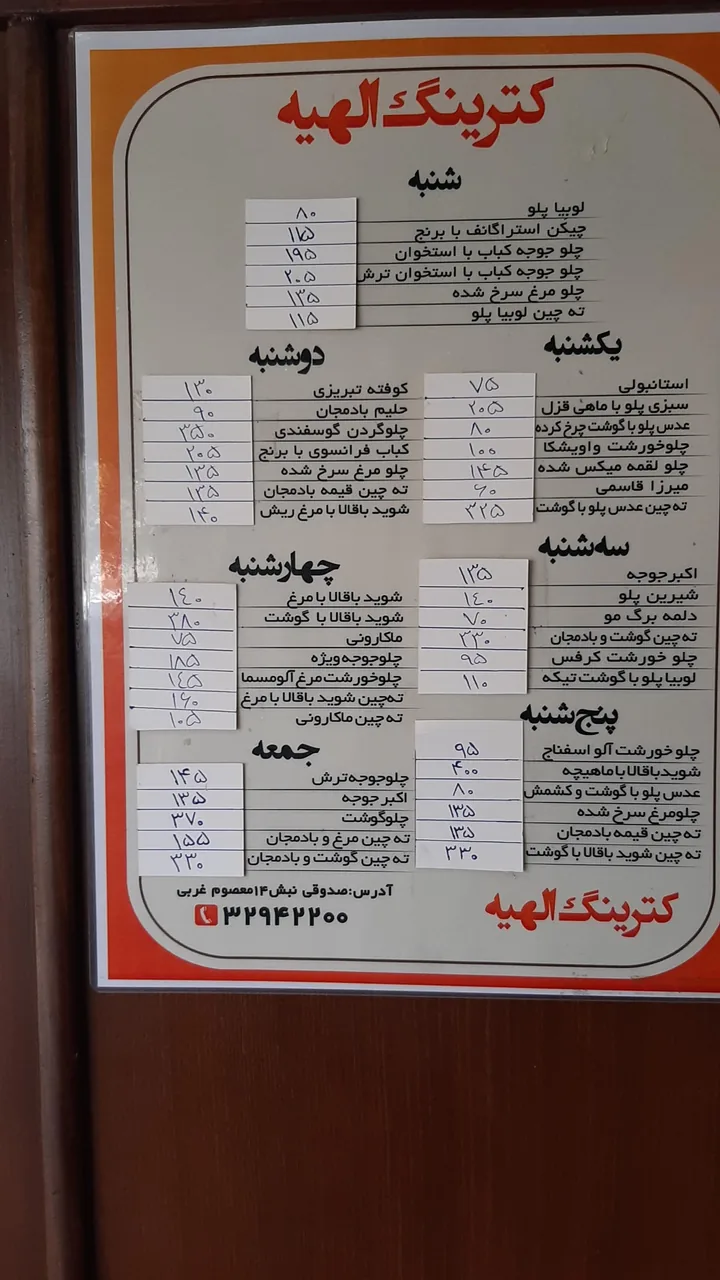 کترینگ الهیه
شنبه
لوبیا پلو ۸۰
چیکن استراگانف با برنج ۱۷۵
چلو جوجه کباب با استخوان ۱۹۵
چلو جوجه کباب با استخوان ترش ۲۰۵
چلو مرغ سرخ شده ۱۳۵
ته چین لوبیا پلو ۱۱۵
یکشنبه
استانبولی ۷۵
سبزی پلو با ماهی قزل ۲۰۵
عدس پلو با گوشت چرخ کرده ۸۰
چلو خورشت واویشکا ۱۰۰
چلو لقمه میکس شده ۱۴۵
میرزا قاسمی ۶۰
ته چین عدس پلو با گوشت ۳۲۵
دوشنبه
کوفته تبریزی ۱۳۰
حلیم بادمجان ۹۰
چلوگردن گوسفندی ۳۵۰
کباب فرانسوی با برنج ۲۰۵
چلو مرغ سرخ شده ۱۳۵
ته چین قیمه بادمجان ۱۳۵
شوید باقالا با مرغ ریش ۱۴۰
سه شنبه
اکبر جوجه ۱۳۵
شیرین پلو ۱۴۰
دلمه برگ مو ۷۰
ته چین گوشت و بادمجان ۳۳۰
چلو خورشت کرفس ۹۵
لوبیا پلو با گوشت تیکه ۱۱۰
چهارشنبه
شوید باقالا با مرغ ۱۴۰
شوید باقالا با گوشت ۳۸۰
ماکارونی ۷۵
چلو جوجه ویژه ۱۸۵
چلوخورشت مرغ آلومسما ۱۴۵
ته چین شوید باقالا با مرغ ۱۶۰
ته چین ماکارونی ۱۰۵
پنج شنبه
چلو خورشت آلو اسفناج ۹۵
شوید باقالا با ماهیچه ۴۰۰
عدس پلو با گوشت و کشمش ۸۰
چلومرغ سرخ شده ۱۳۵
ته چین قیمه بادمجان ۱۳۵
ته چین شوید باقالا با گوشت ۳۳۰
جمعه
چلوجوجه ترش ۱۴۵
اکبر جوجه ۱۳۵
چلوگوشت ۳۷۰
ته چین مرغ و بادمجان ۱۵۵
ته چین گوشت و بادمجان ۳۳۰
کترینگ الهیه
آدرس:صدوقی نبش ۱۴معصوم غربی
۳۲۹۴۲۲۰۰